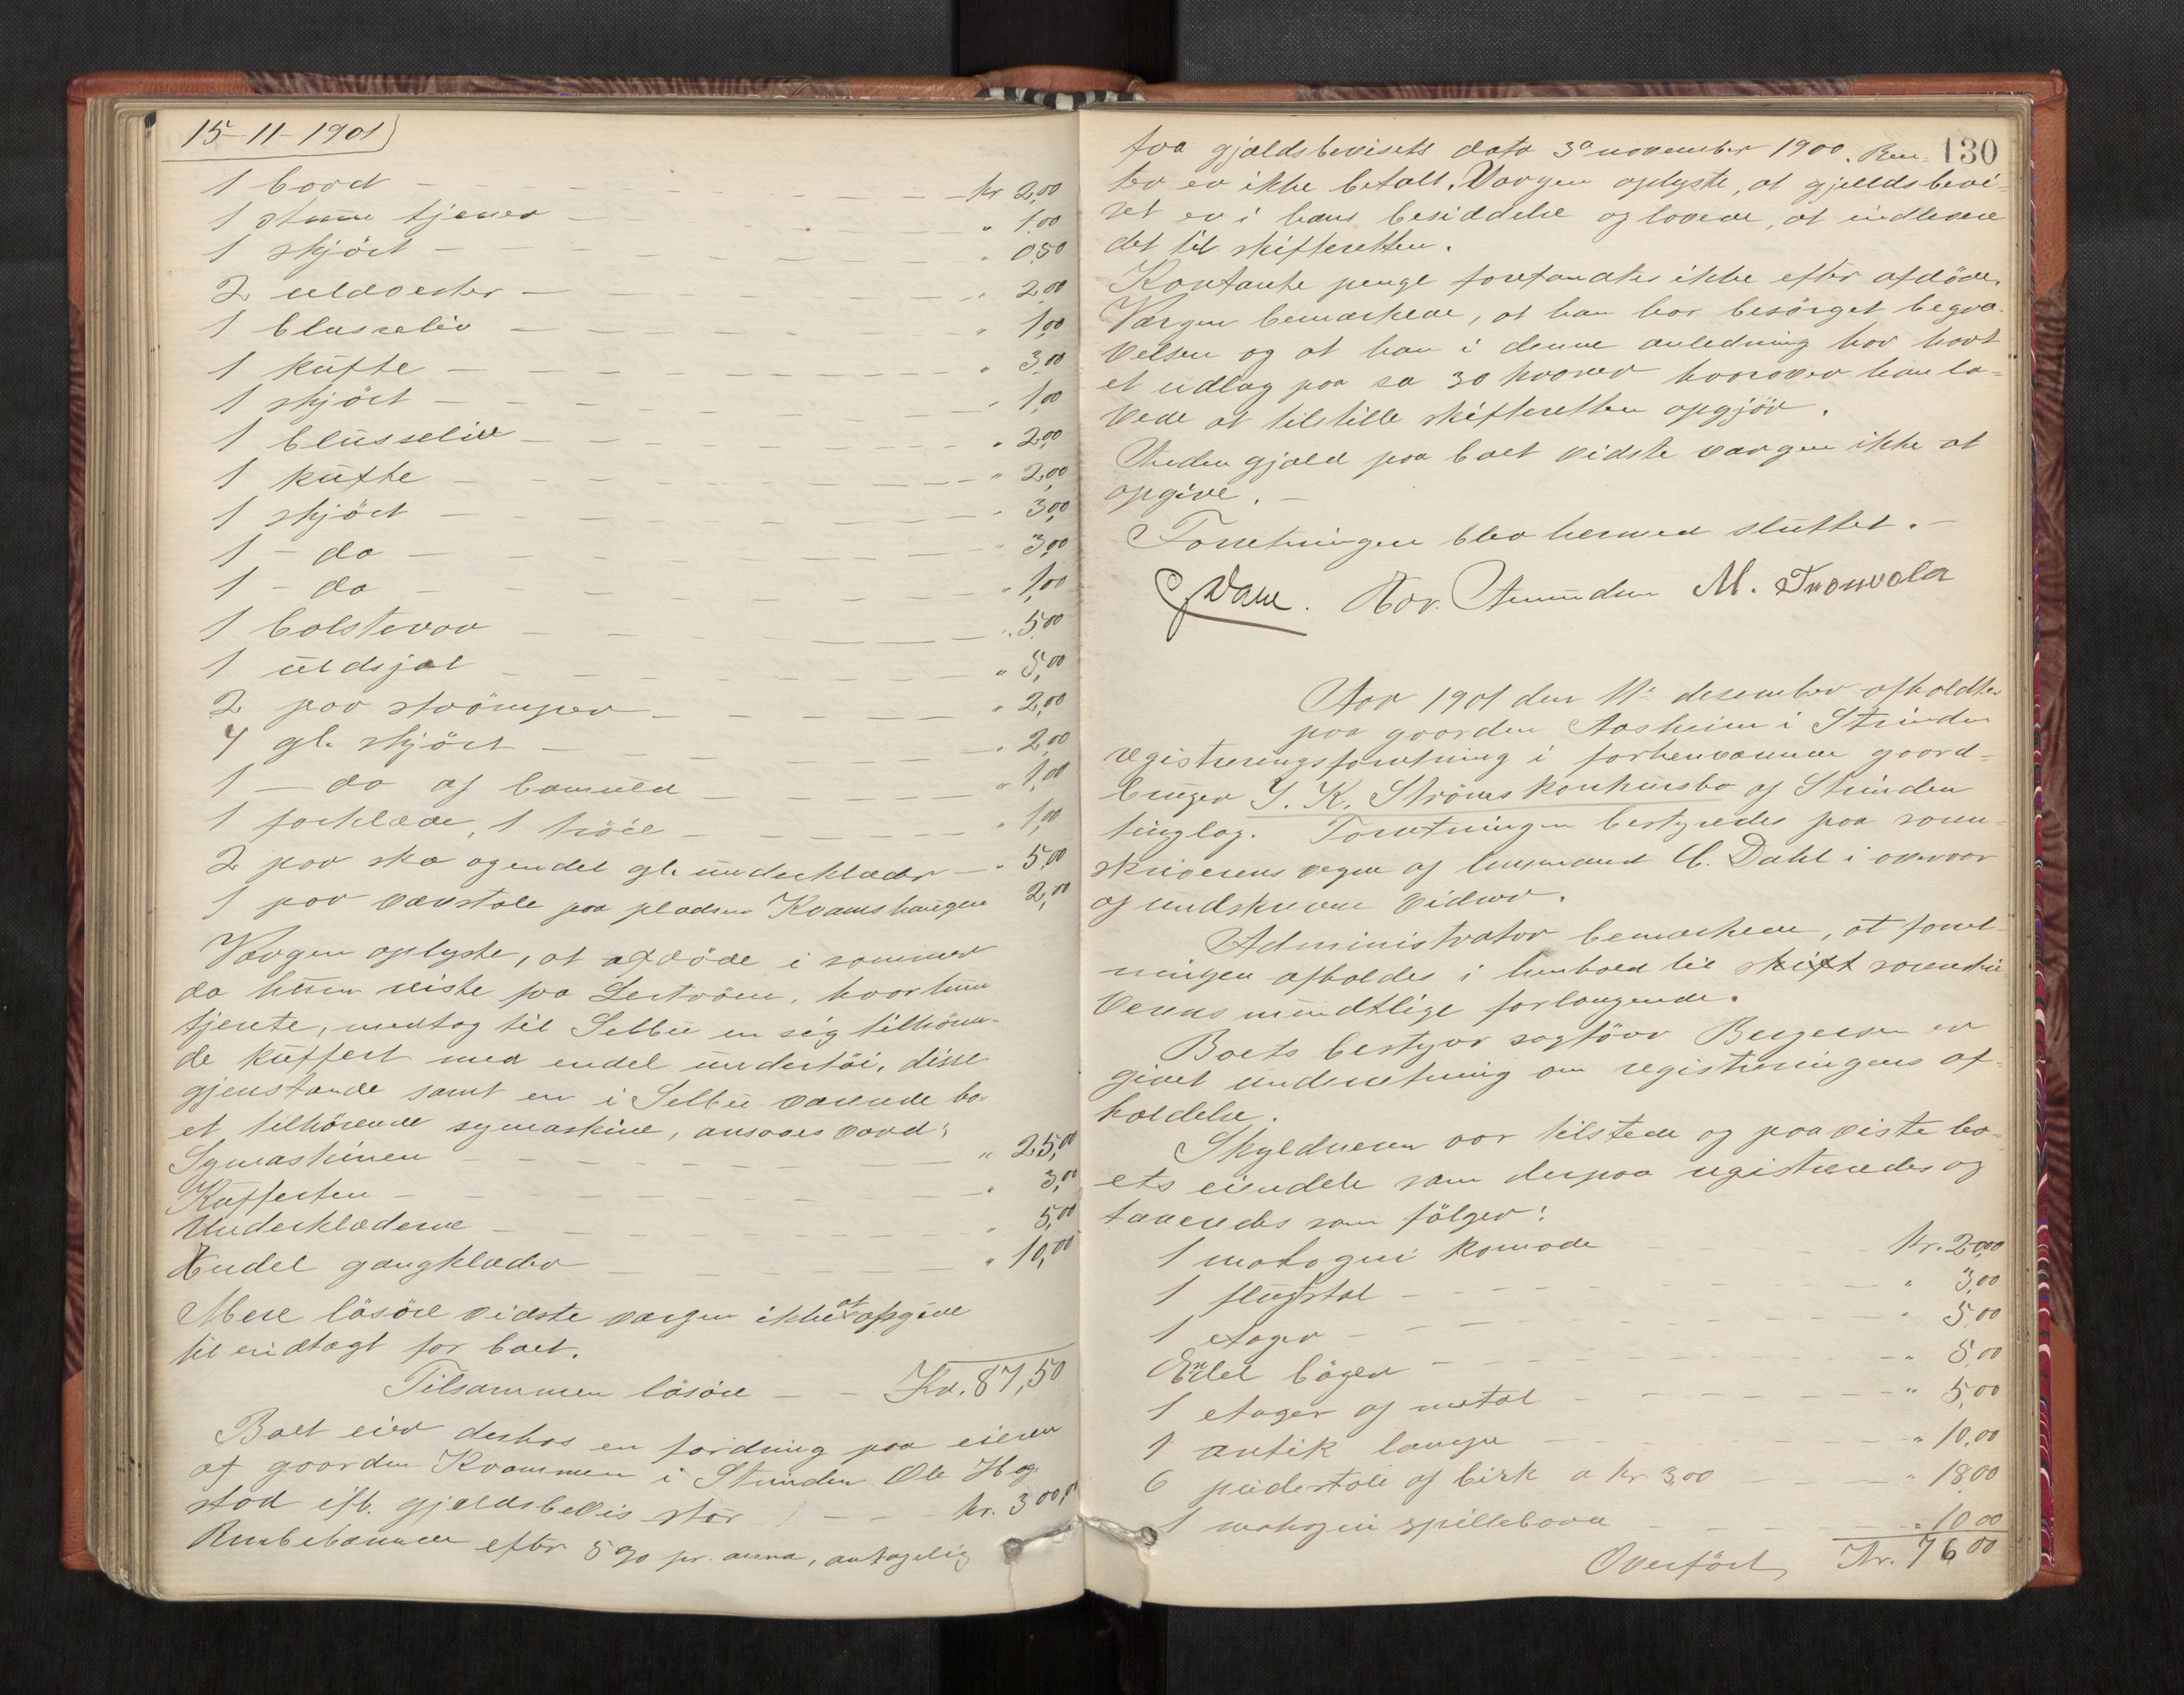 15-11-1901
1 bord - kr 2,00
1 stum tjener - " 1.00
1 skjört - " 0,50
2 uldvester - " 2,00
1 bluseliv - " 1,00
1 küfte - " 3,00
1 skjört - " 1,00
1 blüsseliv - " 2,00
1 küfte - " 2,00
1 skjört - " 3,00
1 - do - " 3,00
1 - do - " 1,00
1 bolstevar - " 5,00
1 uldsjal - " 5,00
2 par strömper - " 2,00
4 gl. skjört - " 2,00
1 - do af bomuld - " 1,00
1 forklæde, 1 tröie - " 1,00
2 par sko og endel gl. underklæder - " 5,00
1 par vævstole paa pladsen Kvamshaugen 2,00
Værgen oplyste, at afdöde i sommer
da hun reiste fra Leströen, hvor hun
tjente, medtog til Selbu en sig tilhören-
de kuffert med endel undertöi, disse
gjenstande samt en i Selbu værende bo-
et tilhörende symaskine, ansaaes værd:
Symaskinen - " 25,00
Kufferten - " 3,00
Underklæderne - " 5,00
Endel gangklæder - " 10,00
Mere lösöre vidste værgen ikke at opgive
til indtægt for boet.
Tilsammen lösöre - - Kr. 87,50
Boet eier deshos en fordring paa eieren
af gaarden Kvammen i Strinden Ole Hog-
stad ifl. gjældsbevis stor - - kr. 300,00
Rentebærende efter 5% pr. anno, antagelig
130
fra gjældsbevisets dato 3die november 1900. Ren-
ter er ikke betalt. Værgen oplyste, at gjældsbevi-
set er i hans besiddelse og lovede, at indlevere
det til skifteretten.
Kontante penge forefandtes ikke efter afdöde.
Værgen bemærkede, at han har besörget begra-
velsen og at han i denne anledning har havt
et udlæg paa ca 30 kroner hvorover han lo-
vede at tilstille skifteretten opgjör.
Anden gjæld paa boet vidste værgen ikke at
opgive. -
Forretningen blev hermed sluttet. -
Aar 1901 den 11te desember afholdtes
paa gaarden Aasheim i Strinden
registreringsforretning i forhenværende gaard-
bruger J. K. Ströms konkursbo af Strinden
tinglag. Forretningen bestyredes paa soren-
skriverens vegne af lensmand C. Dahl i overvær
af underskrevne vidner.
Administrator bemærkede, at forret-
ningen afholdes i henhold til skift sorenskri-
verens mundtlige forlangende.
Boets bestyrer sagförer Bergersen er
givet underretning om registreringens af-
holdelse.
Skyldneren var tilstede og paaviste bo-
ets eiendele som derpaa registreredes og
taxeredes som fölger:
1 mahogni komode kr. 20,00
1 flugstol - " 3,00
1 etager - " 5,00
Endel böger - " 5,00
1 etager af metal - " 5,00
1 antik lampe - " 10,00
6 pidestole af birk a kr. 3,00 - " 18,00
1 mahogni spillebord - " 10,00
Overfört Kr. 76,00